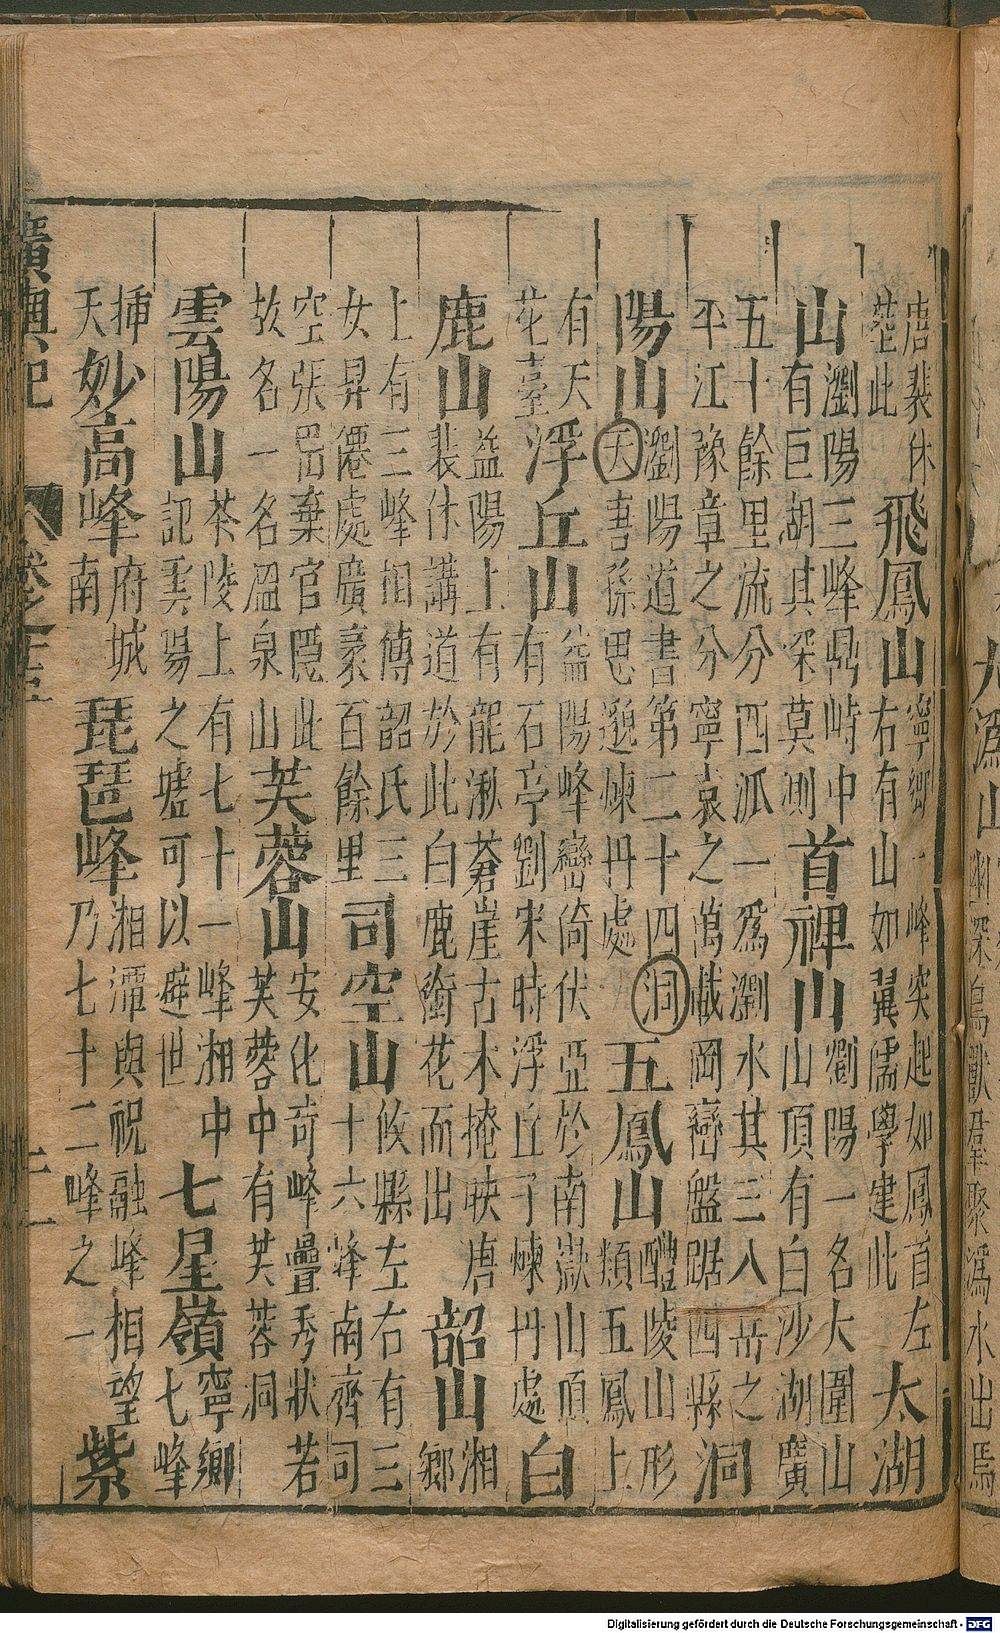 唐裴休
塟此
飛鳳山
寧鄉一峰突起如鳳首左
右有山如翼儒學建此
太湖
山
瀏陽三峰鼎峙中
有巨湖其深莫測
首禪山
瀏陽一名大圍山
山頂有白沙湖廣
五十餘里流分四派一爲瀏水其三入岳之
平江豫章之分寧袁之萬載岡巒盤踞四縣
洞
陽山
瀏陽道書第二十四洞
天吾孫思邈煉丹處
五鳳山
醴陵山形
類五鳳上
有天
花臺
浮丘山
益陽峰巒倚伏亞於南嶽山頂
有石亭劉宋時浮丘子煉丹處
白
鹿山
益陽上有龍湫蒼崖古木掩映唐
裴休講道於此白鹿銜花而出
韶山
湘
鄉
上有三峰相傳韶氏三
女昇僊處廣袤百餘里
司空山
攸縣左右有三
十六峰南齊司
空張岊棄官隱此
故名一名溫泉山
芙蓉山
安化奇峰疊秀狀若
芙蓉中有芙蓉洞
雲陽山
茶陵上有七十一峰湘中
記雲陽之墟可以避世
七星嶺
寧鄉
七峰
挿
天
妙高峰
府城
南
琵琶峰
湘潭與祝融峰相望
乃七十二峰之一
紫
廣輿記
卷之十三
二一
九溈山
幽深鳥獸羣聚溈水出焉
Digitalisierung gefördert durch die Deutsche Forschungsgemeinschaft - DFG